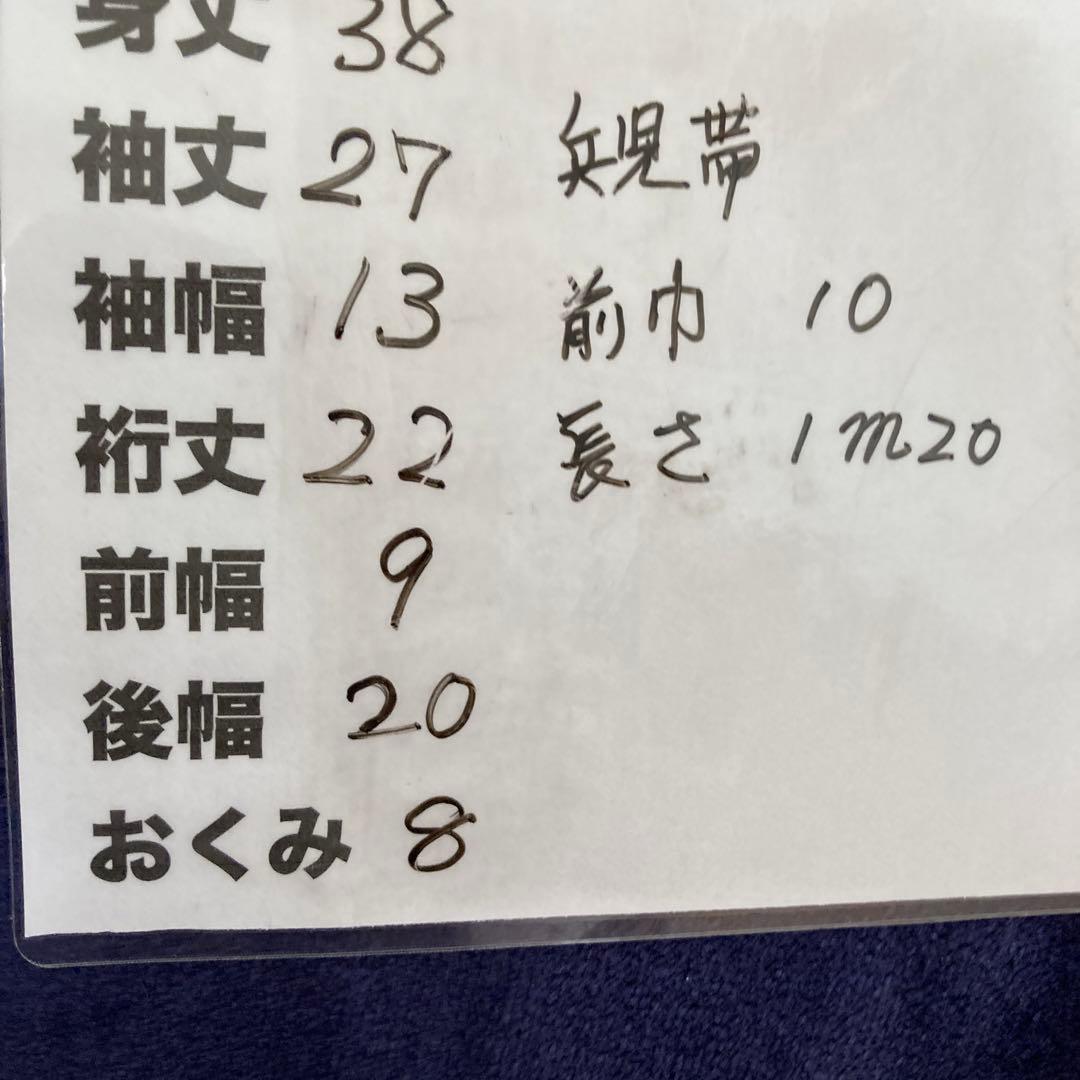 身丈 38
袖丈 27 兵児帯
袖幅 13 前巾 10
裄丈 22 長さ 1m20
前幅 9
後幅 20
おくみ 8